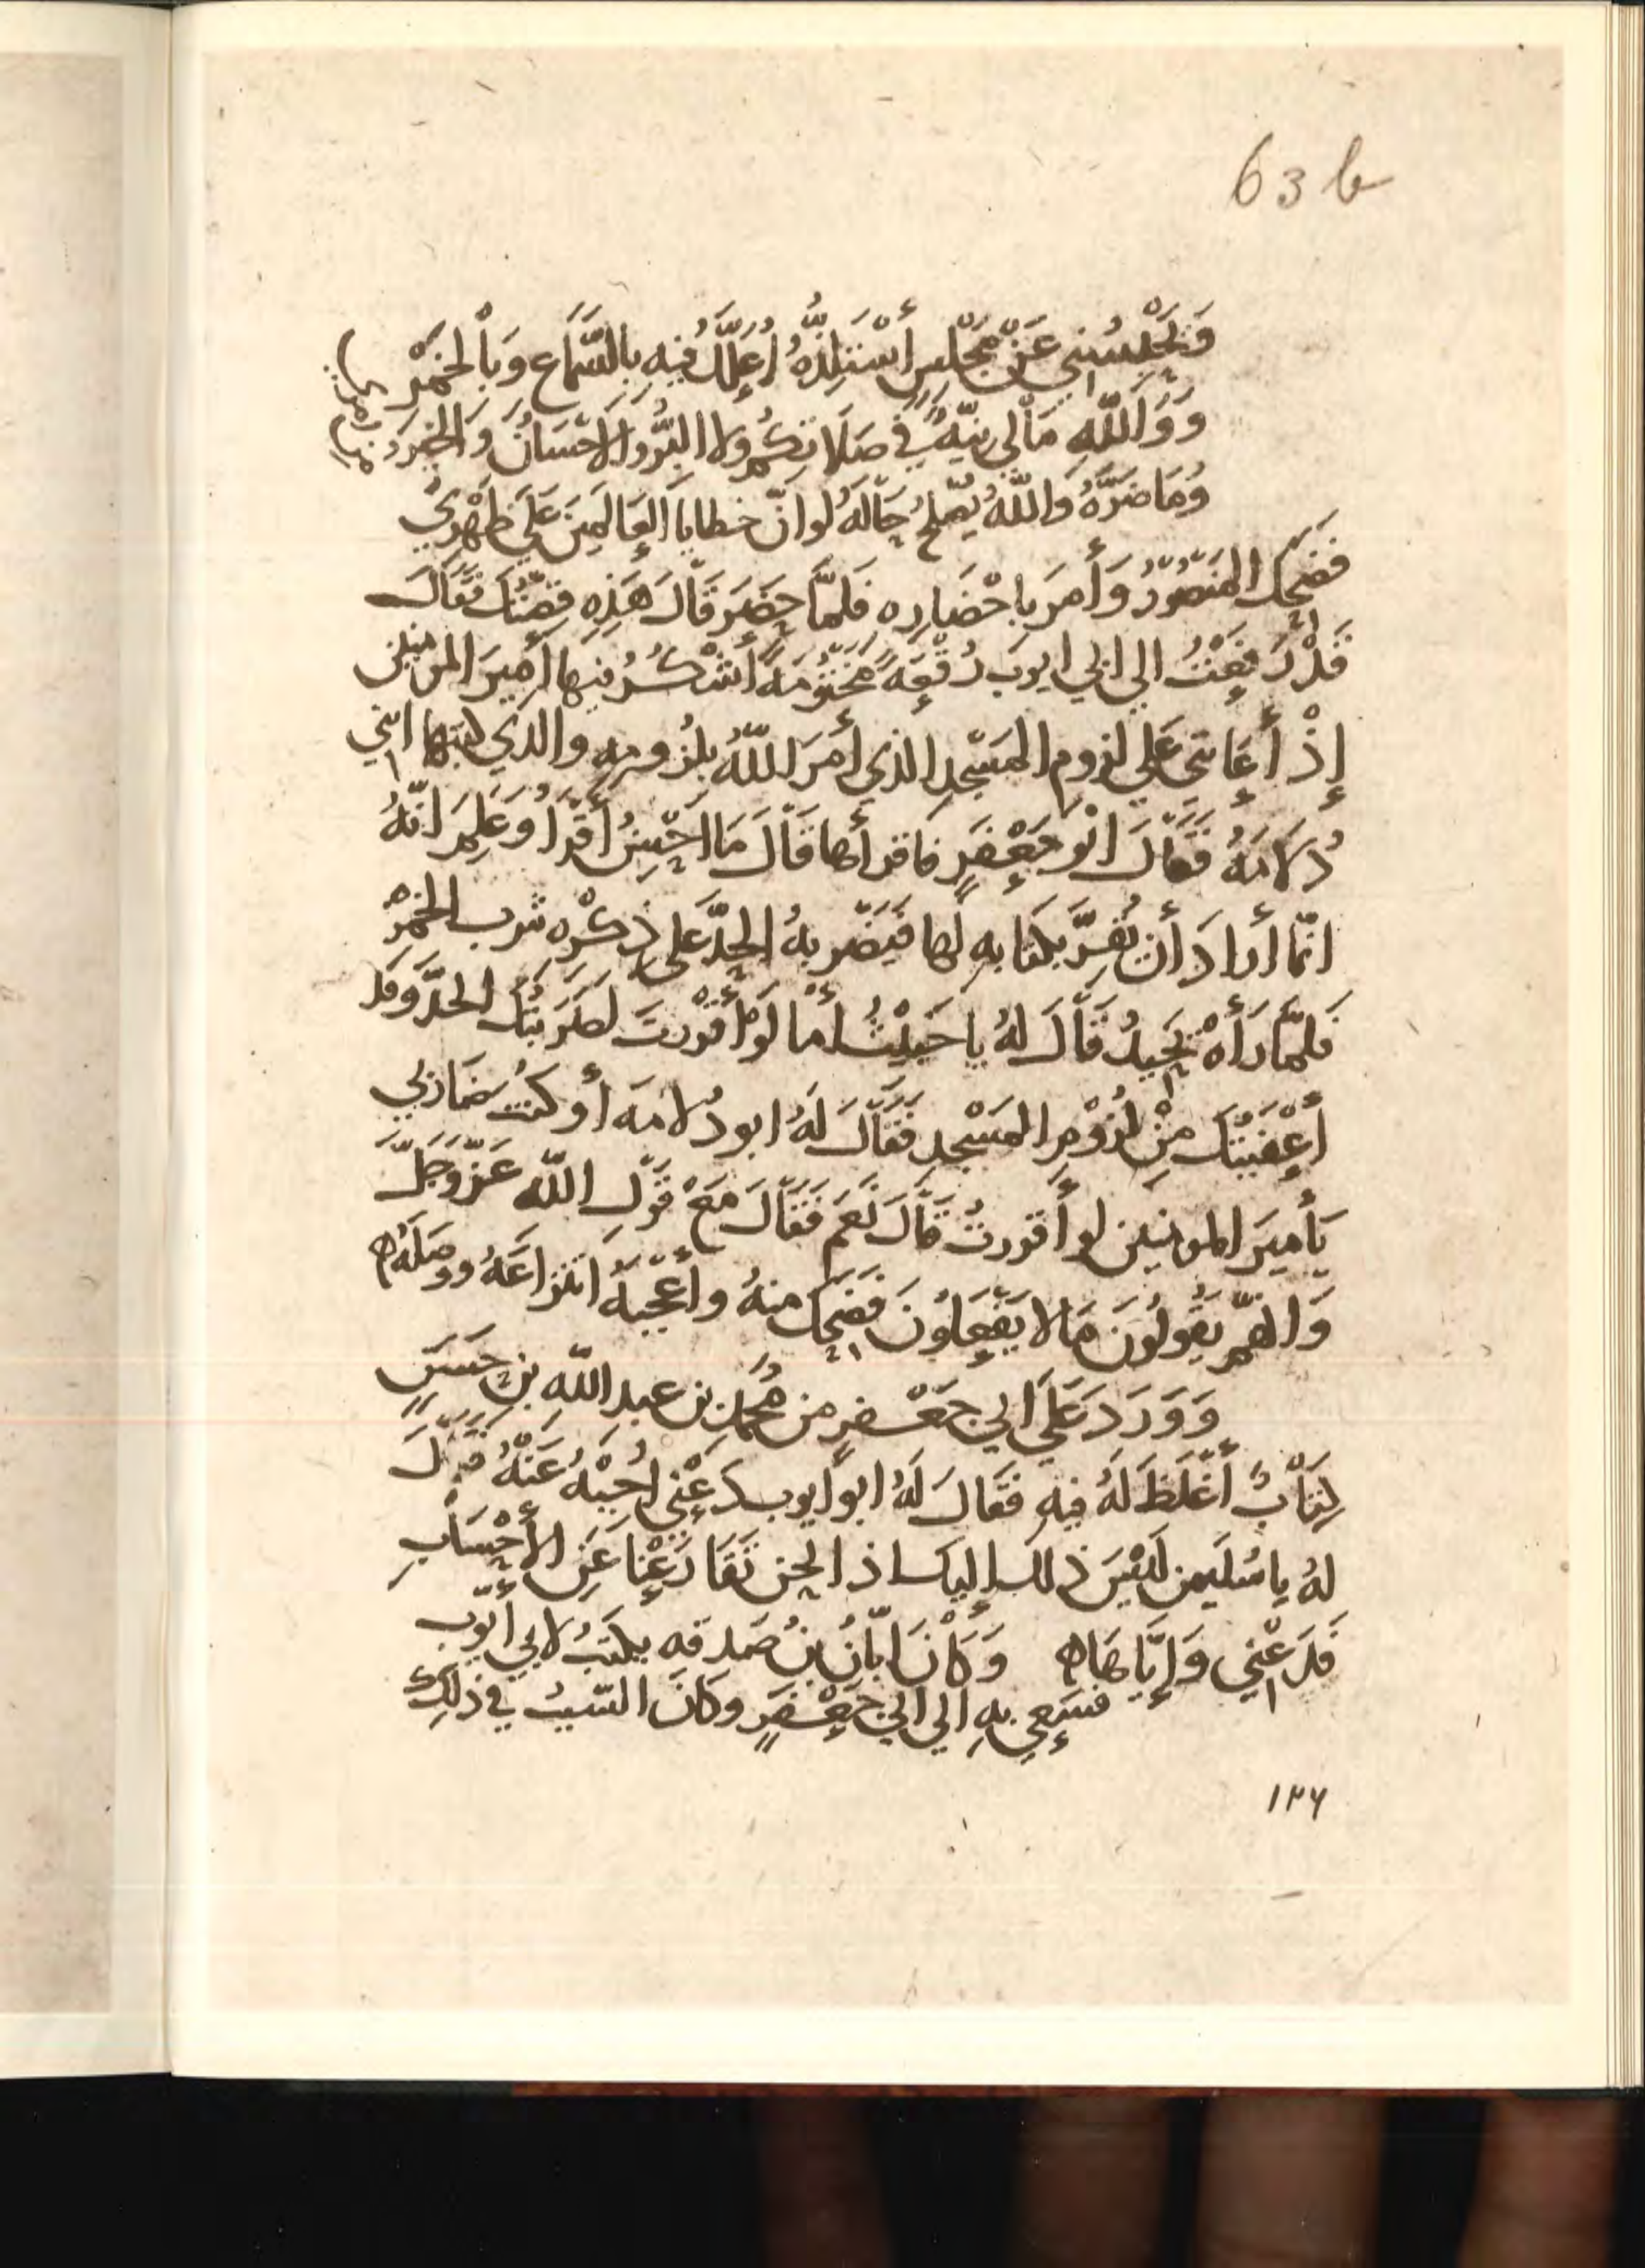 63 b
وَيَحْبِسُنِي عَنْ مَجْلِسٍ أَسْتَلِذُّهُ أُعَلَّلُ فِيهِ بِالسَّمَاعِ وَبِالْخَمْرِ
وَوَاللَّهِ مَالِي نِيَّةٌ فِي صَلَاتِكُمْ وَلَا الْبِرُّ وَالْإِحْسَانُ وَالْخَيْرُ
وَمَا ضَرَّهُ وَاللَّهُ يُصْلِحُ حَالَهُ لَوْ أَنَّ خَطَايَا الْعَالَمِينَ عَلَى ظَهْرِي
فَضَحِكَ الْمَنْصُورُ وَأَمَرَ بِإِحْضَارِهِ فَلَمَّا حَضَرَ قَالَ هَذِهِ قِصَّتُكَ فَقَالَ
قَدْ رَفَعْتُ إلى أبي أيوب رُقْعَةً مَخْتُومَةً أَشْكُرُ فِيهَا أَمِيرَ المومنين
إِذْ أَعَانَنِي عَلَى لزوم الْمَسْجِدِ الذي أَمَرَ اللَّهُ بِلُزُومِهِ والذي كتبها انني
دُلَامَةُ فَقَالَ أَبُو جَعْفَرٍ فاقرأها قَالَ مَا أُحْسِنُ أَقْرَأُ وَعَلِمَ أَنَّهُ
إِنَّمَا أَرَادَ أَنْ يُقِرَّ بِكِتَابِهِ لَهَا فَيَضْرِبهُ الْحَدَّ عَلَى ذِكْرِهِ شرب الْخَمْرِ
فَلَمَّا رَأَهْ يَحِيدُ قَالَ لَهُ يَا خَبِيثُ أَمَا لَوْ أَقْرَرْتَ لَضَرَبْتُكَ الْحَدَّ وَقَد
أَعْفَيْتُكَ مِنْ لُزُوْمِ الْمَسْجِدِ فَقَالَ لَهُ ابو دُلامَه أَوَكُنْتَ ضَارِبِي
يَأَمِيرَ المومنين لو أَقْرَرْتُ قَالَ نَعَمْ فَقَالَ مَعْ قَوْلِ اللَّهِ عَزَّ وَجَلَّ
وَانَّهُمْ يَقُولُونَ مَا لَا يَفْعَلُونَ فَضَحِكَ مِنْهُ وَأَعْجَبَهُ انتزاعَهُ ووَصَلَهُ ه
وَوَرَدَ عَلَى أَبِي جَعْفَرٍ من مُحَمَّدِ بن عبد اللَّهِ بْنِ حَسَنٍ
كِتَابٌ أَغْلَظَ لَهُ فِيهِ فَقَالَ لَهُ ابو ايوب دَعْنِي أُجِبْهُ عَنْهُ فَقَالَ
لَهُ يا سُلَيمن لَيْسَ ذلك إِلَيْكَ اذا نحن تَقَارَعْنَا عَنِ الْأَحْسَابِ
فَدَعْنِي وَإِيَّاهَاه وَكَانَ أَبَانُ بْنُ صَدقه يكتبُ لأبي أَيُّوب
فَسَعِي بِهِ إلى أبي جَعْفَرٍ وَكَانَ السَّبَبُ فِي ذَلِكَ
١٢٦